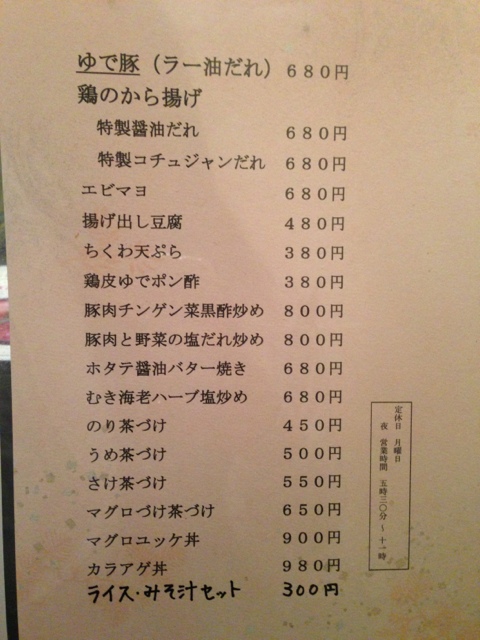 ゆで豚（ラー油だれ） ６８０円
鶏のから揚げ
特製醤油だれ ６８０円
特製コチュジャンだれ ６８０円
エビマヨ ６８０円
揚げ出し豆腐 ４８０円
ちくわ天ぷら ３８０円
鶏皮ゆでポン酢 ３８０円
豚肉チンゲン菜黒酢炒め ８００円
豚肉と野菜の塩だれ炒め ８００円
ホタテ醤油バター焼き ６８０円
むき海老ハーブ塩炒め ６８０円
のり茶づけ ４５０円
うめ茶づけ ５００円
さけ茶づけ ５５０円
マグロづけ茶づけ ６５０円
マグロユッケ丼 ９００円
カラアゲ丼 ９８０円
ライス・みそ汁セット ３００円
定休日 月曜日
夜 営業時間 五時三〇分～十一時